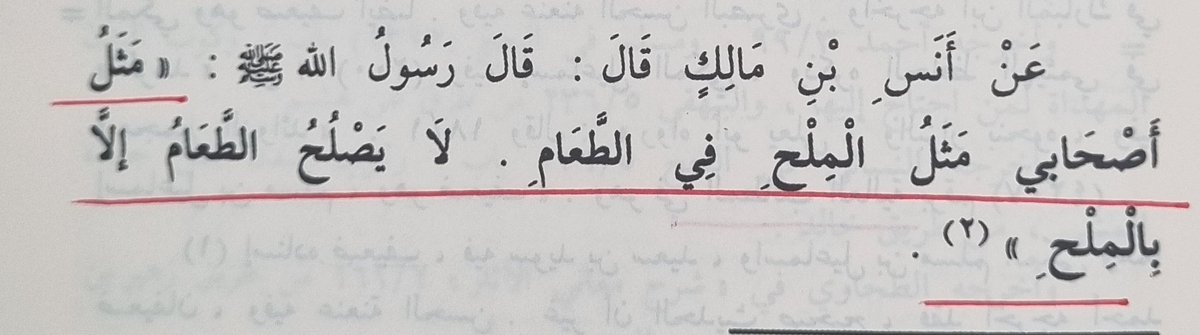 عَنْ أَنَسِ بْنِ مَالِكٍ قَالَ : قَالَ رَسُولُ الله ﷺ : « مَثَلُ
أَصْحَابي مَثَلُ الْمِلْحِ فِي الطَّعَامِ . لَا يَصْلُحُ الطَّعَامُ إلَّا
بِالْمِلْحِ » (٢) .